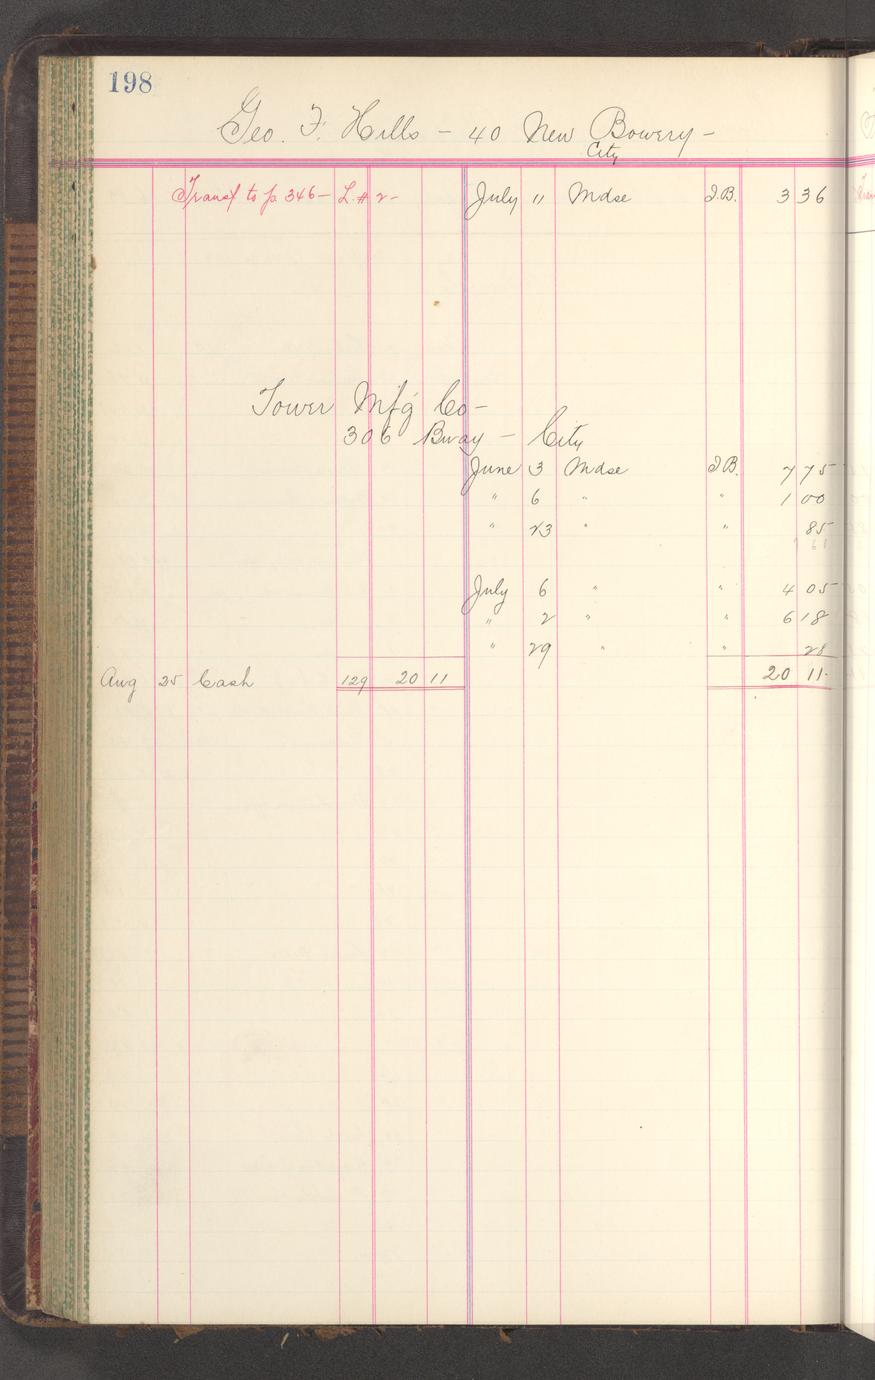 198
Geo. F. Hills - 40 New Bowery -
City
Transf to p 346 - L. # 2 - July 11 Mdse I.B. 3 36
Tower Mfg Co -
306 Bway - City
June 3 Mdse I.B. 7 75
" 6 " " 1 00
" 23 " " 85
July 6 " " 4 05
" 2 " " 6 18
" 29 " " 28
Aug 25 Cash 129 20 11 20 11